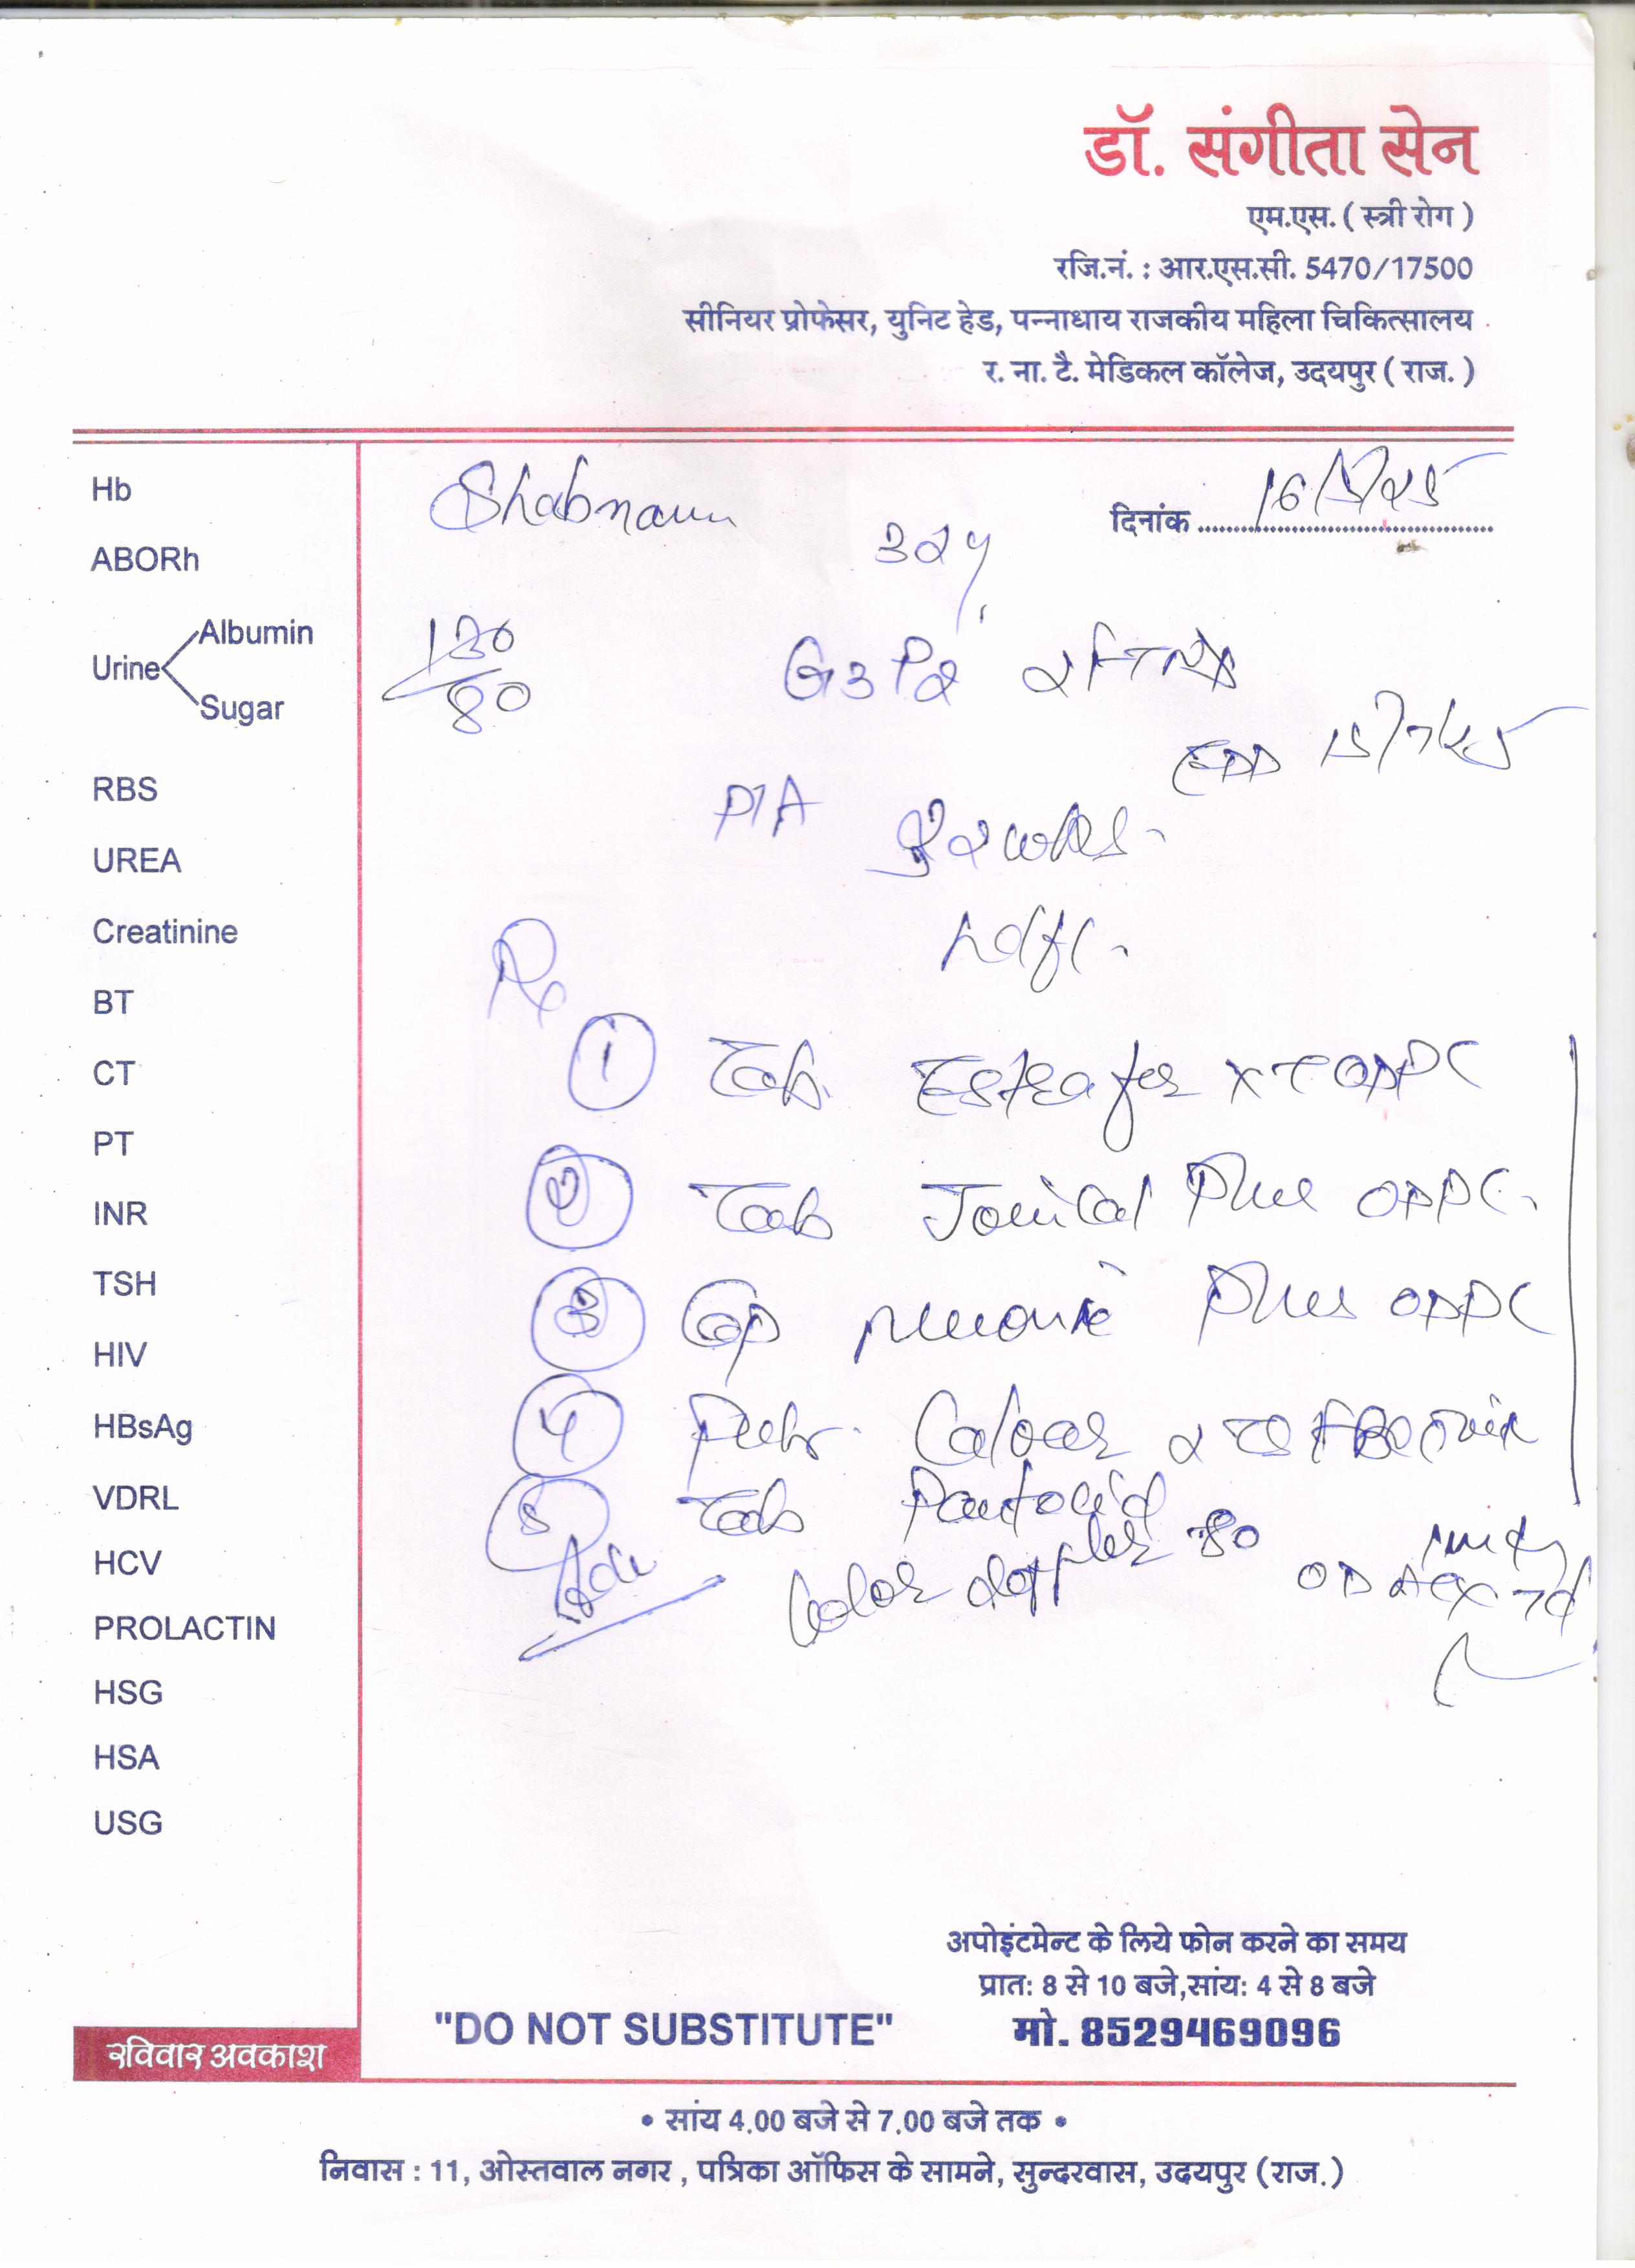 डॉ. संगीता सेन
एम.एस. ( स्त्री रोग )
रजि.नं. : आर.एस.सी. 5470/17500
सीनियर प्रोफेसर, युनिट हेड, पन्नाधाय राजकीय महिला चिकित्सालय
र. ना. टै. मेडिकल कॉलेज, उदयपुर ( राज. )
दिनांक 16/5/25
Shabnam
32y
130/80
G3P2
EDD 15/7/25
P/A 32 wks
Rx
1 Tab. XT OD PC
2 Tab Plus OD PC
3 Cap Plus OD PC
4
5 Tab Pantocid
Adv Color doppler
Hb
ABORh
Urine Albumin
Sugar
RBS
UREA
Creatinine
BT
CT
PT
INR
TSH
HIV
HBsAg
VDRL
HCV
PROLACTIN
HSG
HSA
USG
रविवार अवकाश
अपोइंटमेन्ट के लिये फोन करने का समय
प्रात: 8 से 10 बजे,सांय: 4 से 8 बजे
"DO NOT SUBSTITUTE" मो. 8529469096
• सांय 4.00 बजे से 7.00 बजे तक •
निवास : 11, ओस्तवाल नगर , पत्रिका ऑफिस के सामने, सुन्दरवास, उदयपुर (राज.)